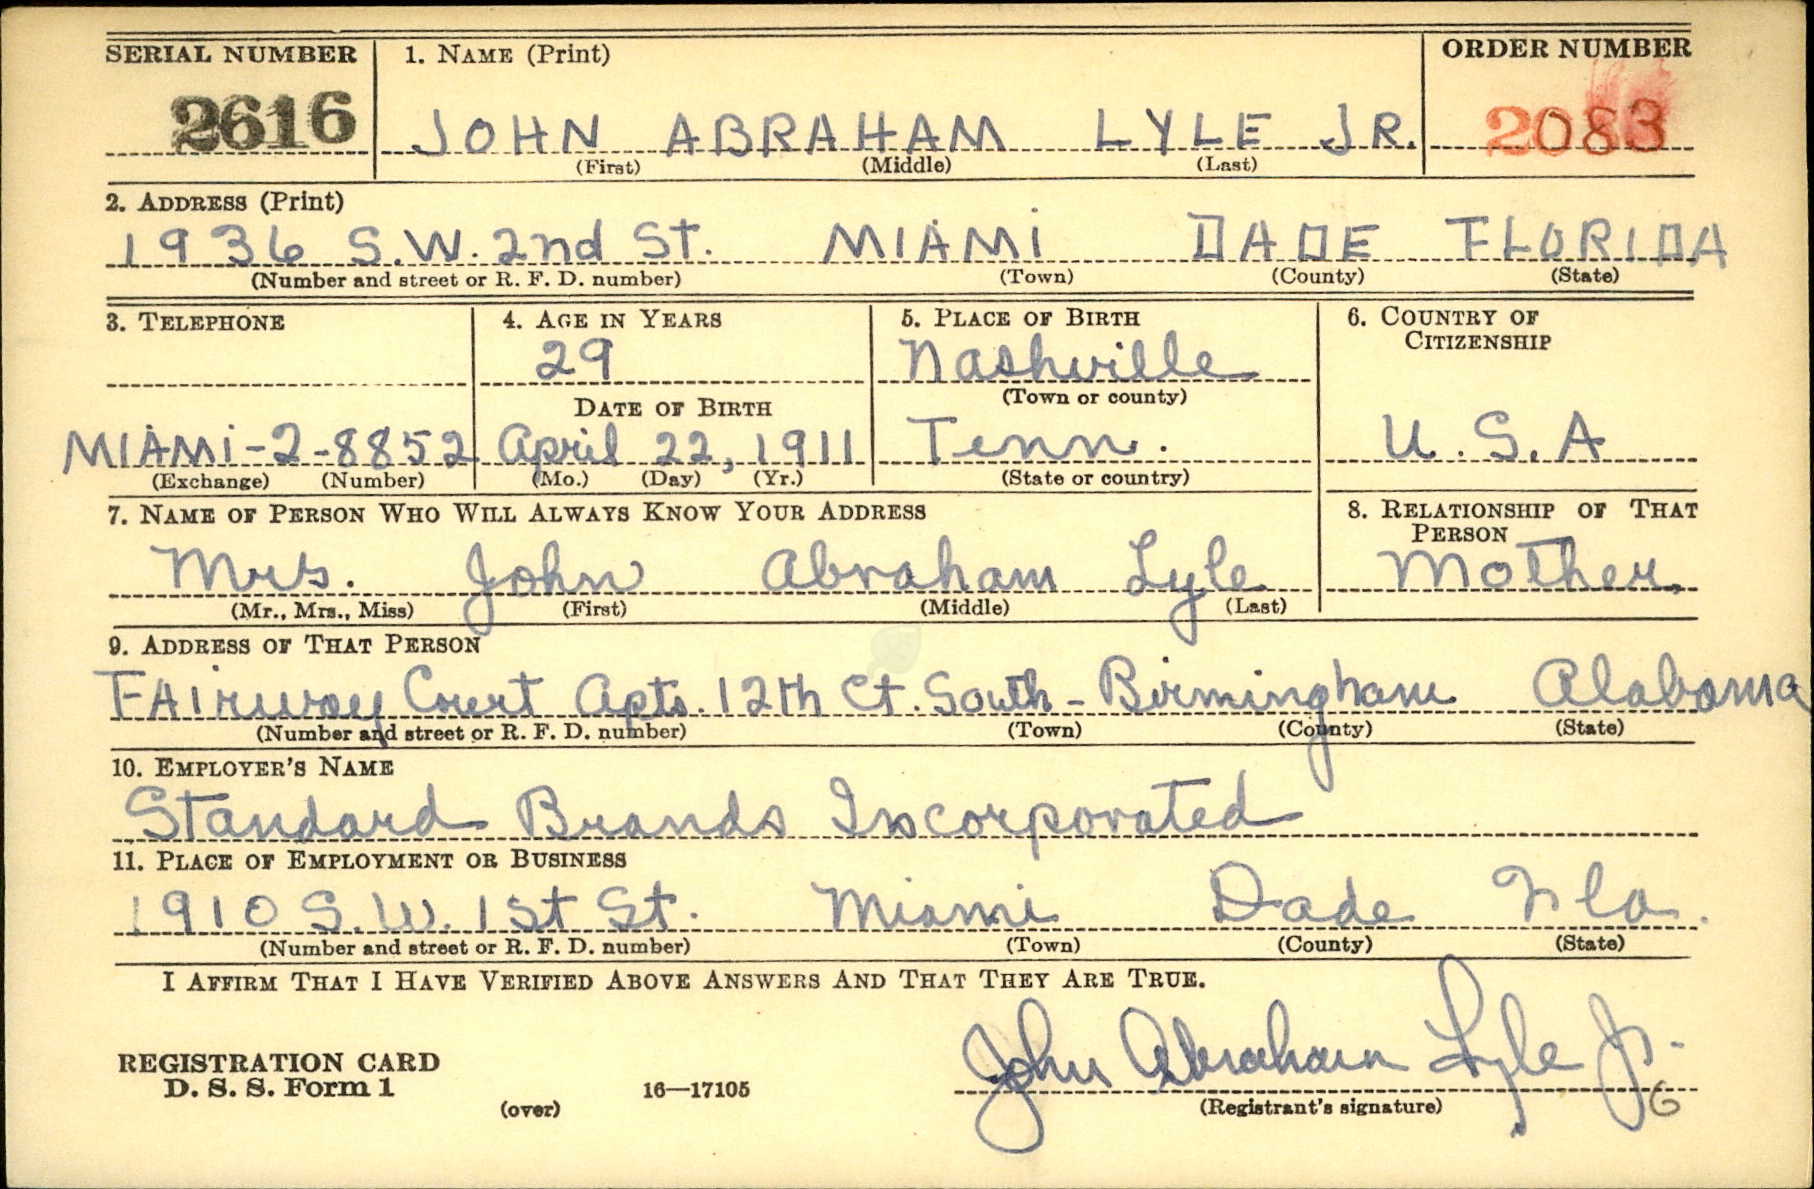 SERIAL NUMBER 1. NAME (Print) ORDER NUMBER
2616 JOHN ABRAHAM LYLE JR. 2083
(First) (Middle) (Last)
2. ADDRESS (Print)
1936 S.W. 2nd ST. MIAMI DADE FLORIDA
(Number and street or R. F. D. number) (Town) (County) (State)
3. TELEPHONE 4. AGE IN YEARS 5. PLACE OF BIRTH 6. COUNTRY OF
CITIZENSHIP
29 Nashville
DATE OF BIRTH (Town or county)
MIAMI-2-8852 April 22, 1911 Tenn. U.S.A
(Exchange) (Number) (Mo.) (Day) (Yr.) (State or country)
7. NAME OF PERSON WHO WILL ALWAYS KNOW YOUR ADDRESS 8. RELATIONSHIP OF THAT
PERSON
Mrs. John Abraham Lyle Mother
(Mr., Mrs., Miss) (First) (Middle) (Last)
9. ADDRESS OF THAT PERSON
FAirway Court Apts. 12th Ct. South - Birmingham Alabama
(Number and street or R. F. D. number) (Town) (County) (State)
10. EMPLOYER'S NAME
Standard Brands Incorporated
11. PLACE OF EMPLOYMENT OR BUSINESS
1910 S.W. 1st St. Miami Dade Fla.
(Number and street or R. F. D. number) (Town) (County) (State)
I AFFIRM THAT I HAVE VERIFIED ABOVE ANSWERS AND THAT THEY ARE TRUE.
John Abraham Lyle Jr.
REGISTRATION CARD
D. S. S. Form 1 16—17105
(over) (Registrant's signature) 6